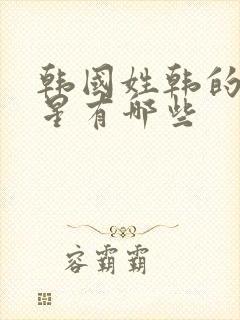 韩国姓韩的
星有哪些
容霸霸